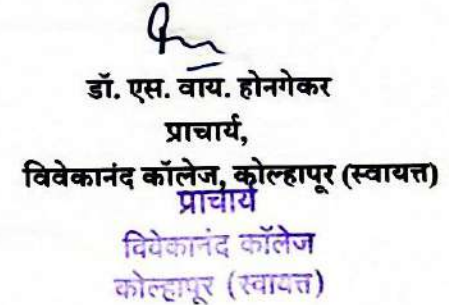 डॉ. एस. वाय. होनगेकर
प्राचार्य,
विवेकानंद कॉलेज, कोल्हापूर (स्वायत्त)
प्राचार्य
विवेकानंद कॉलेज
कोल्हापूर (स्वायत्त)